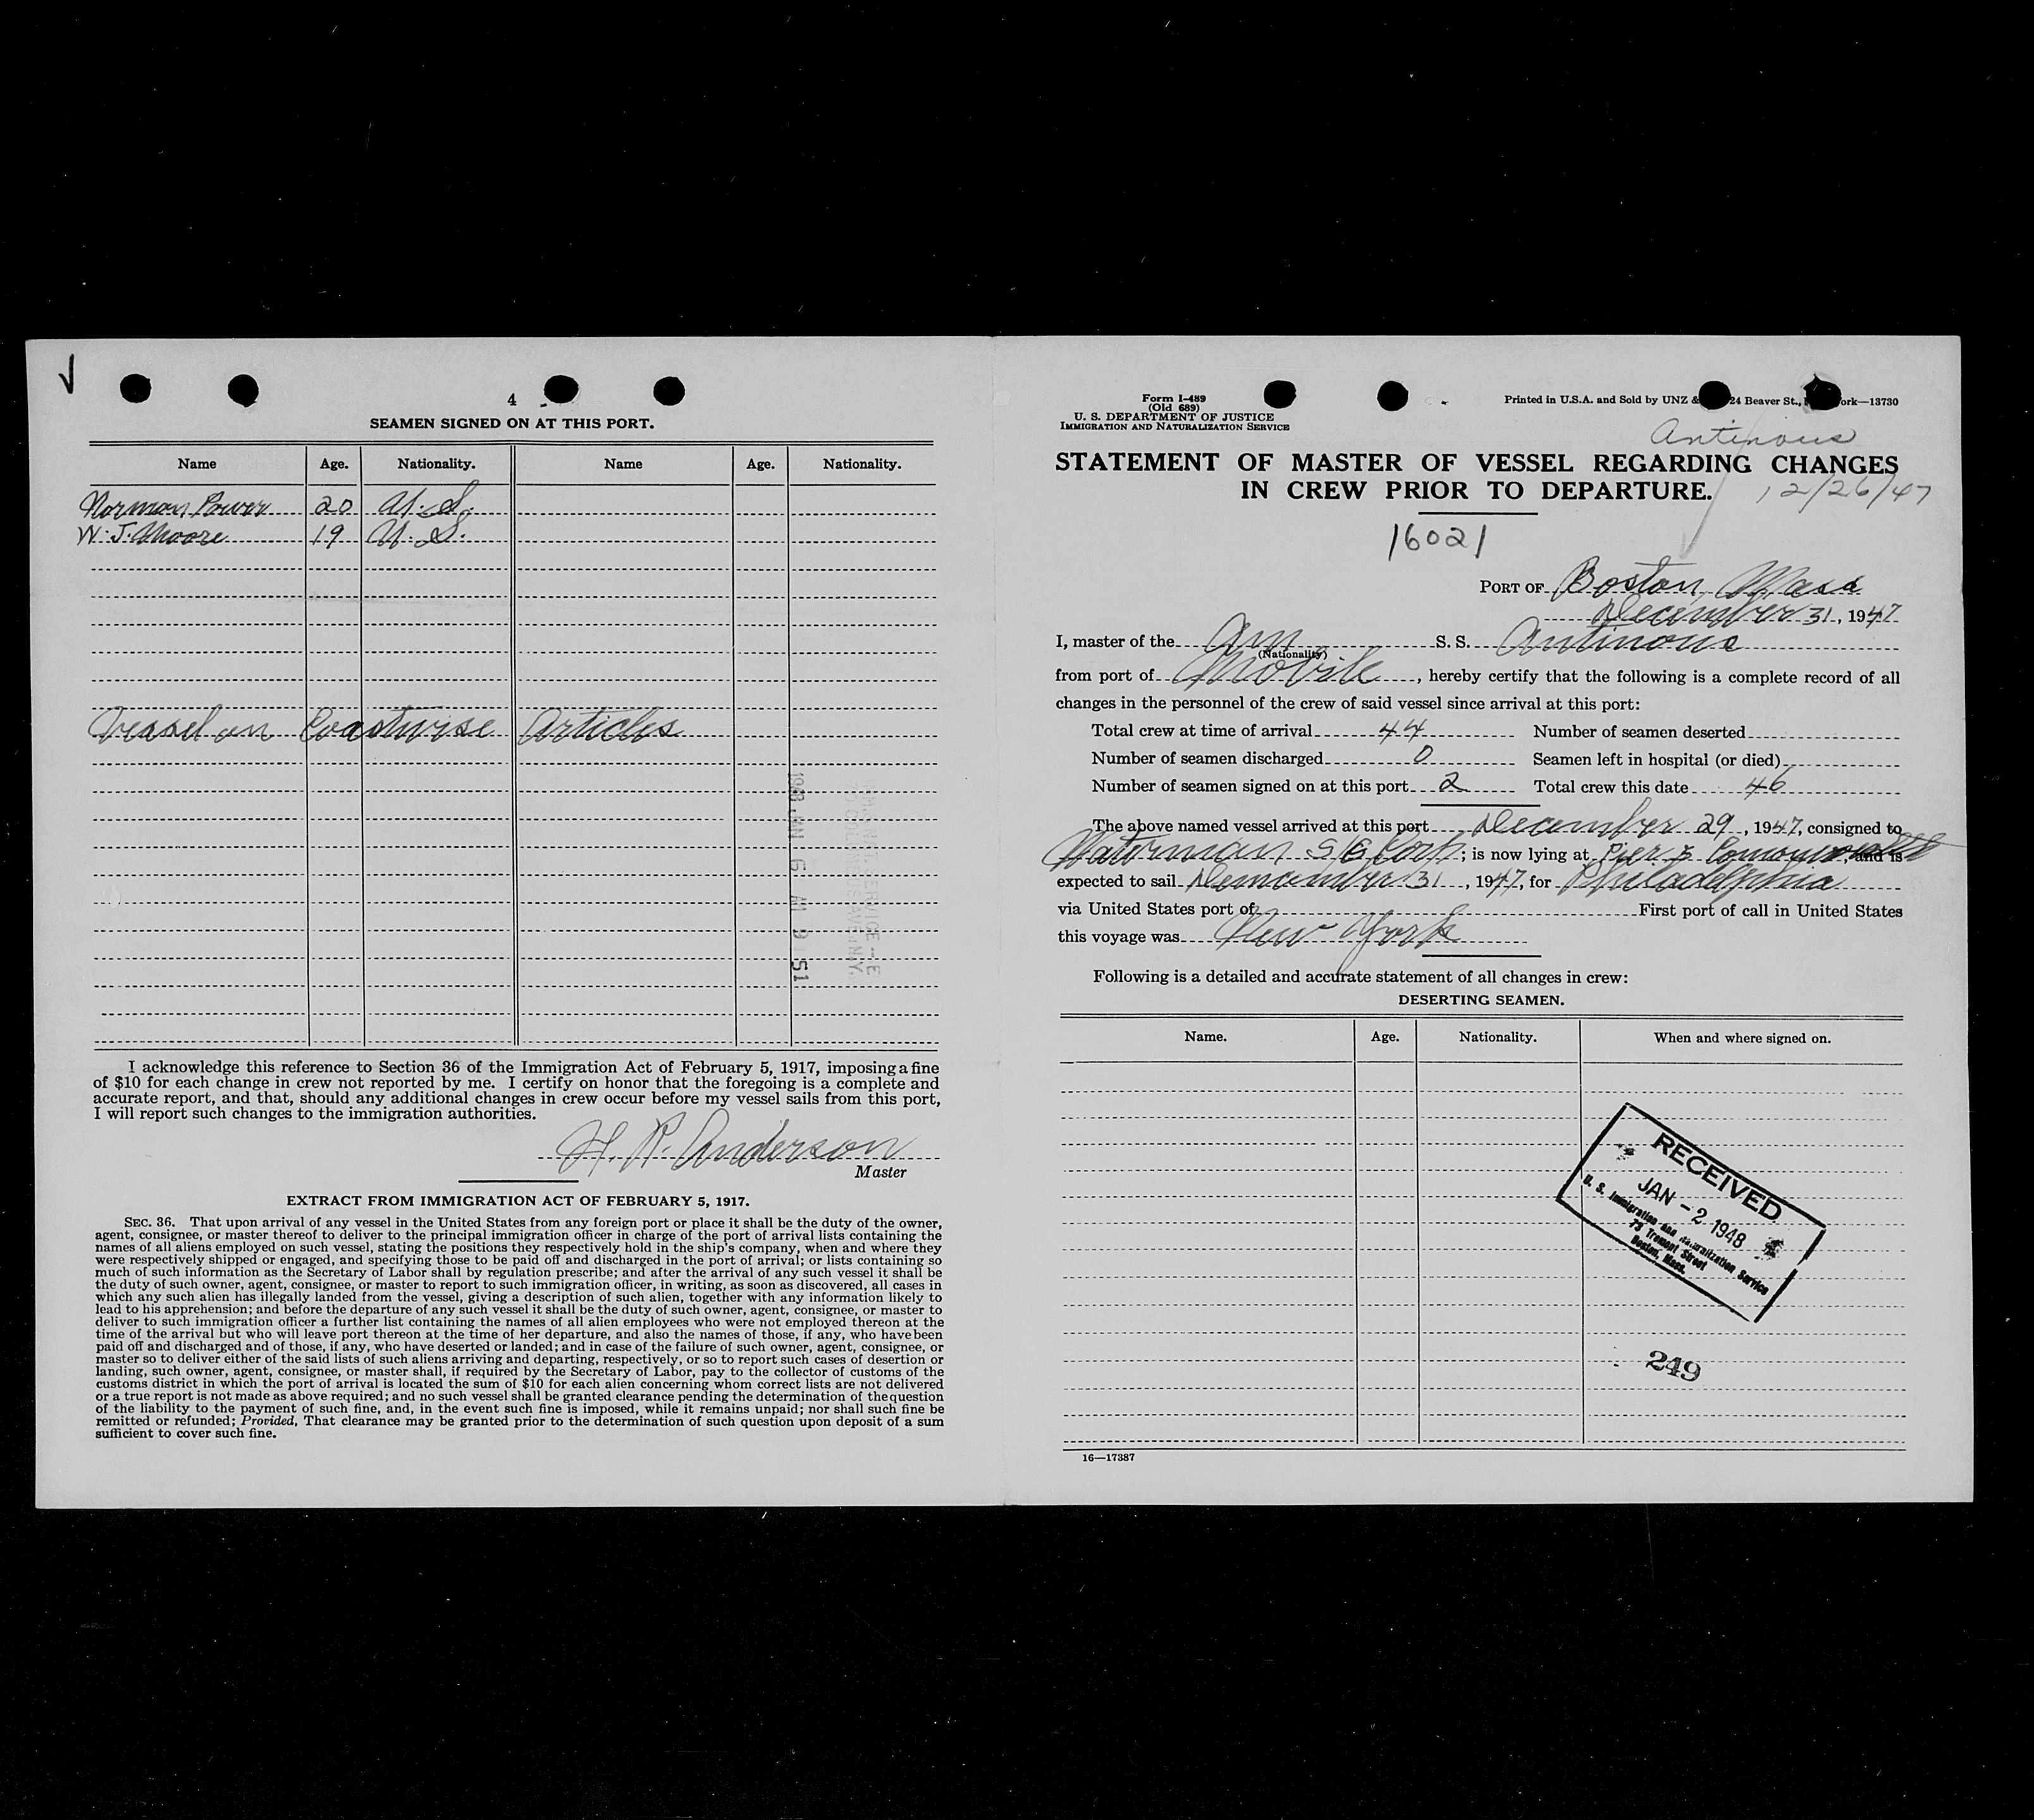 4
SEAMEN SIGNED ON AT THIS PORT.
Name Age. Nationality. Name Age. Nationality.
Norman Power 20 U.S.
W. J. Moore 19 U.S.
Vessel on Coastwise Articles
I acknowledge this reference to Section 36 of the Immigration Act of February 5, 1917, imposing a fine
of $10 for each change in crew not reported by me. I certify on honor that the foregoing is a complete and
accurate report, and that, should any additional changes in crew occur before my vessel sails from this port,
I will report such changes to the immigration authorities.
H. R. Anderson
Master
EXTRACT FROM IMMIGRATION ACT OF FEBRUARY 5, 1917.
SEC. 36. That upon arrival of any vessel in the United States from any foreign port or place it shall be the duty of the owner,
agent, consignee, or master thereof to deliver to the principal immigration officer in charge of the port of arrival lists containing the
names of all aliens employed on such vessel, stating the positions they respectively hold in the ship's company, when and where they
were respectively shipped or engaged, and specifying those to be paid off and discharged in the port of arrival; or lists containing so
much of such information as the Secretary of Labor shall by regulation prescribe; and after the arrival of any such vessel it shall be
the duty of such owner, agent, consignee, or master to report to such immigration officer, in writing, as soon as discovered, all cases in
which any such alien has illegally landed from the vessel, giving a description of such alien, together with any information likely to
lead to his apprehension; and before the departure of any such vessel it shall be the duty of such owner, agent, consignee, or master to
deliver to such immigration officer a further list containing the names of all alien employees who were not employed thereon at the
time of the arrival but who will leave port thereon at the time of her departure, and also the names of those, if any, who have been
paid off and discharged and of those, if any, who have deserted or landed; and in case of the failure of such owner, agent, consignee, or
master so to deliver either of the said lists of such aliens arriving and departing, respectively, or so to report such cases of desertion or
landing, such owner, agent, consignee, or master shall, if required by the Secretary of Labor, pay to the collector of customs of the
customs district in which the port of arrival is located the sum of $10 for each alien concerning whom correct lists are not delivered
or a true report is not made as above required; and no such vessel shall be granted clearance pending the determination of the question
of the liability to the payment of such fine, and, in the event such fine is imposed, while it remains unpaid; nor shall such fine be
remitted or refunded; Provided, That clearance may be granted prior to the determination of such question upon deposit of a sum
sufficient to cover such fine.
Form I-489
(Old 689)
U. S. DEPARTMENT OF JUSTICE
IMMIGRATION AND NATURALIZATION SERVICE
Printed in U.S.A. and Sold by UNZ & 24 Beaver St., ork—13730
Antinous
STATEMENT OF MASTER OF VESSEL REGARDING CHANGES
IN CREW PRIOR TO DEPARTURE.
12/26/47
16021
PORT OF Boston, Mass
December 31, 1947
I, master of the Am S. S. Antinous
(Nationality)
from port of Mobile, hereby certify that the following is a complete record of all
changes in the personnel of the crew of said vessel since arrival at this port:
Total crew at time of arrival 44 Number of seamen deserted
Number of seamen discharged 0 Seamen left in hospital (or died)
Number of seamen signed on at this port 2 Total crew this date 46
The above named vessel arrived at this port December 29, 1947, consigned to
Waterman S S Corp; is now lying at Pier 5 ; and is
expected to sail Demcember 31, 1947, for Philadelphia
via United States port of First port of call in United States
this voyage was New York
Following is a detailed and accurate statement of all changes in crew:
DESERTING SEAMEN.
Name. Age. Nationality. When and where signed on.
RECEIVED
JAN - 2 1948
U. S. Immigration and Naturalization Service
73 Tremont Street
Boston, Mass.
249
16—17387